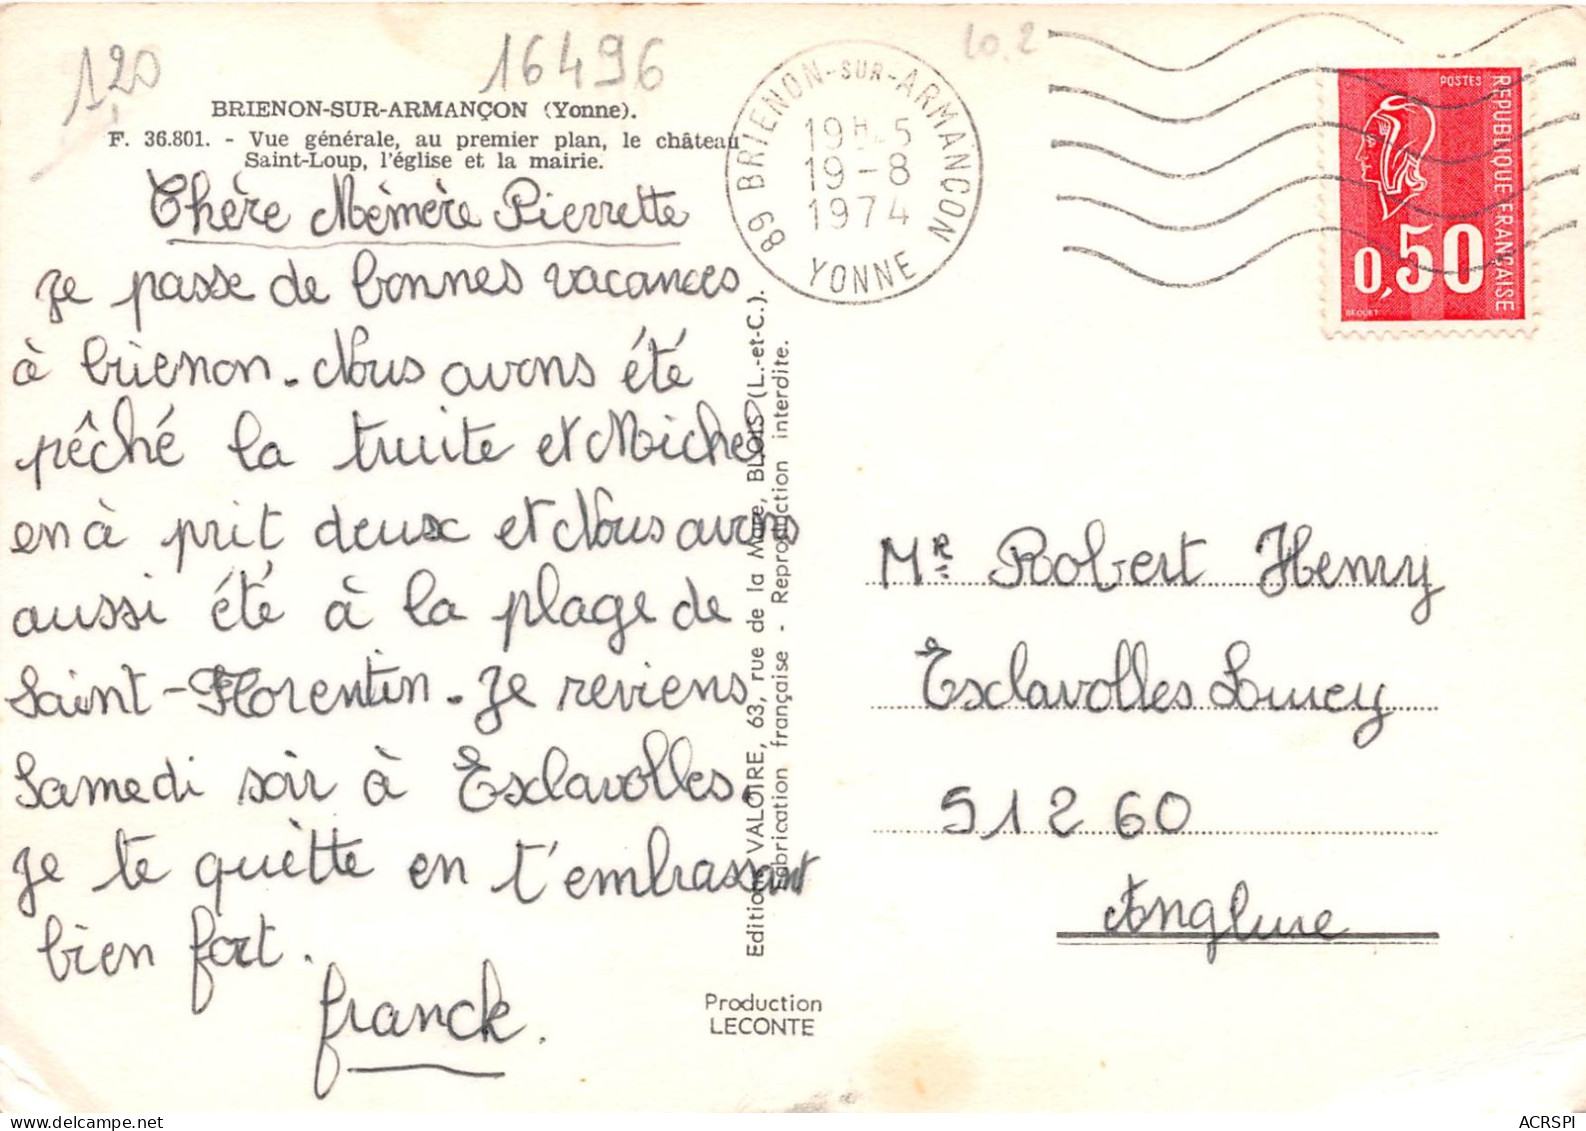 120
16496
10.2
BRIENON-SUR-ARMANÇON (Yonne).
F. 36.801. - Vue générale, au premier plan, le château
Saint-Loup, l'église et la mairie.
Chère Mémère Pierrette
Je passe de bonnes vacances
à brienon. Nous avons été
pêché la truite et Michel
en à prit deux et Nous avons
aussi été à la plage de
Saint-Florentin. Je reviens
Samedi soir à Esclavolles.
Je te quitte en t'embrassant
bien fort.
franck.
Editions VALOIRE, 63, rue de la Mare, BLOIS (L.-et-C.).
Fabrication française - Reproduction interdite.
Production
LECONTE
89 BRIENON-SUR-ARMANÇON
19H-5
19-8
1974
YONNE
POSTES
REPUBLIQUE FRANÇAISE
0,50
BEQUET
Mr Robert Henry
Esclavolles Lurey
51260
Anglure
ACRSPI